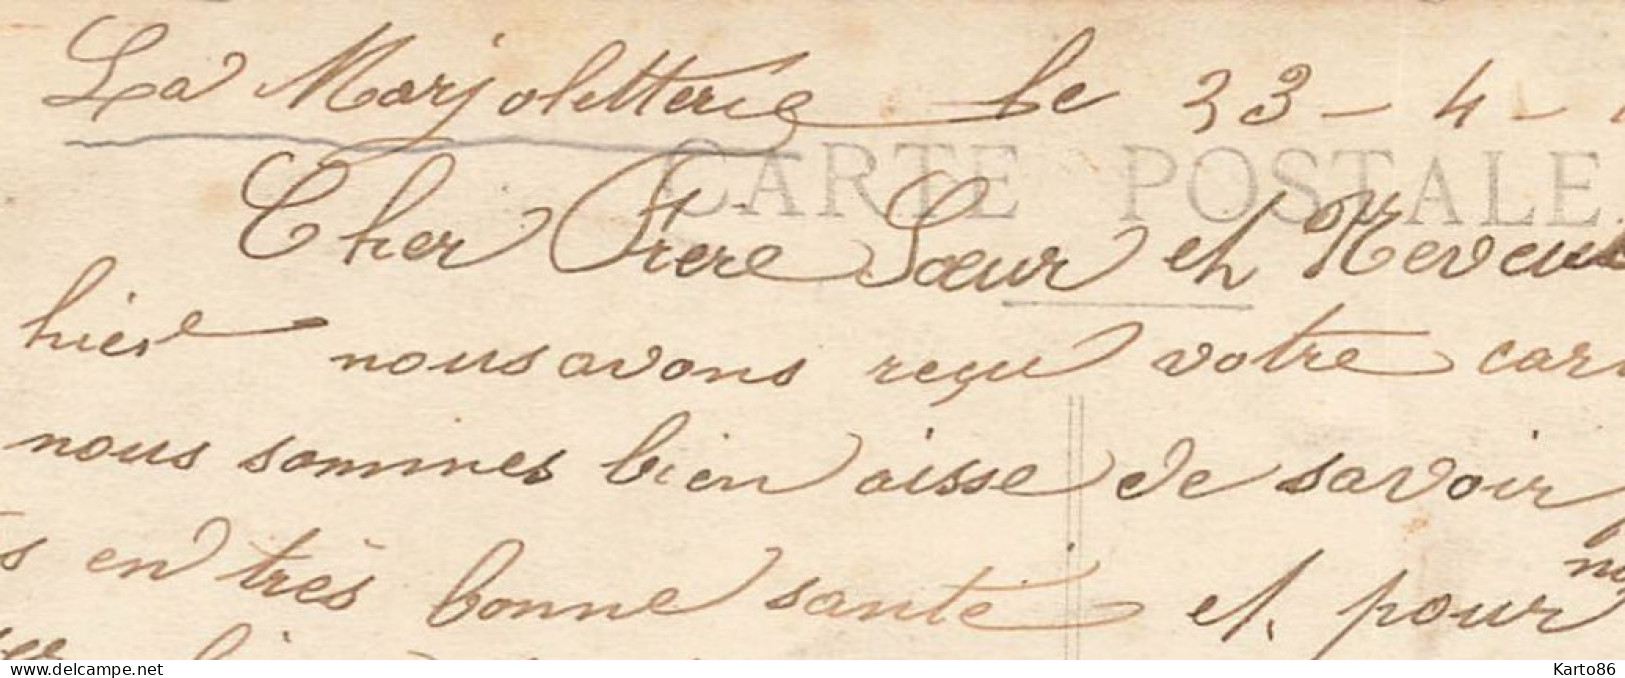 La Marjoletterie le 23-4-
CARTE POSTALE
Cher Frere Sœur et Neveu
hier nous avons reçu votre
nous sommes bien aisse de savoir
en très bonne santé et pour
www.delcampe.net
Karto86